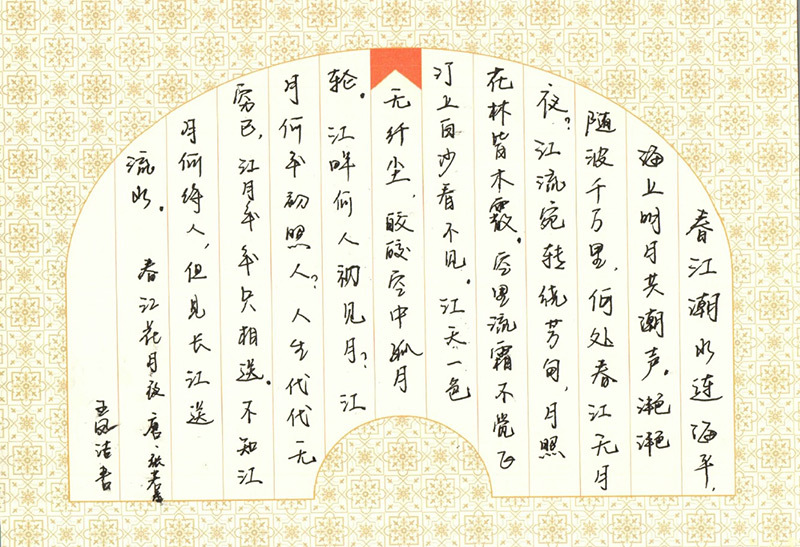 春江潮水连海平，
海上明月共潮声。滟滟
随波千万里，何处春江无月
夜？江流宛转绕芳甸，月照
花林皆木霰。空里流霜不觉飞
汀上白沙看不见。江天一色
无纤尘，皎皎空中孤月
轮。江畔何人初见月？江
月何年初照人？人生代代无
穷已，江月年年只相送。不知江
月何待人，但见长江送
流水。 春江花月夜 唐·张若虚
王凤洁书